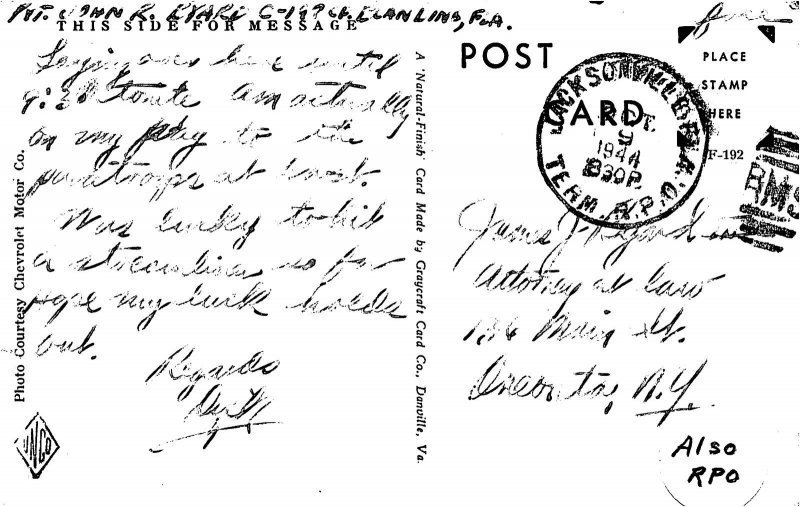 PVT. JOHN R. C-1 BLANDING, FLA.
THIS SIDE FOR MESSAGE
Laying over here until
9:30 tonite Am actually
on my way to the
paratroops at last.
Was lucky to hit
a streamliner so far
hope my luck holds
out.
Regards
Photo Courtesy Chevrolet Motor Co.
A 'Natural-Finish' Card Made by Graycraft Card Co., Danville, Va.
Free
POST CARD
PLACE
STAMP
HERE
F-192
JACKSONVILLE, FLA.
OCT.
9
1944
830P
TERM. R.P.O.
RMS
James J.
Attorney at law
Main St.
Oneonta, N.Y.
Also
RPO